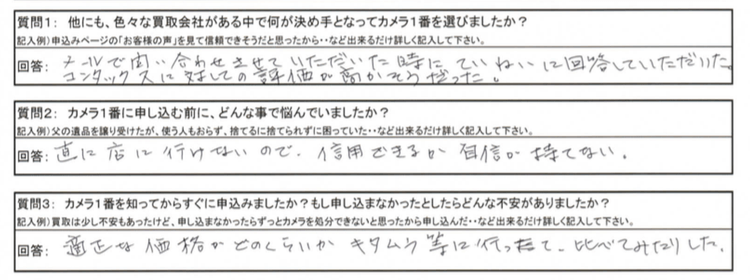 質問1： 他にも、色々な買取会社がある中で何が決め手となってカメラ1番を選びましたか？
記入例）申込みページの「お客様の声」を見て信頼できそうだと思ったから・・など出来るだけ詳しく記入して下さい。
回答： メールで問い合わせさせていただいた時に、ていねいに回答していただいた。
コンタックスに対しての評価が高かそうだった。
質問2： カメラ1番に申し込む前に、どんな事で悩んでいましたか？
記入例）父の遺品を譲り受けたが、使う人もおらず、捨てるに捨てられずに困っていた・・など出来るだけ詳しく記入して下さい。
回答： 直に店に行けないので、信用できるか自信が持てない。
質問3： カメラ1番を知ってからすぐに申込みましたか？もし申し込まなかったとしたらどんな不安がありましたか？
記入例）買取は少し不安もあったけど、申し込まなかったらずっとカメラを処分できないと思ったから申し込んだ・・など出来るだけ詳しく記入して下さい。
回答： 適正な価格がどのくらいか キタムラ等に行って、比べてみたりした。